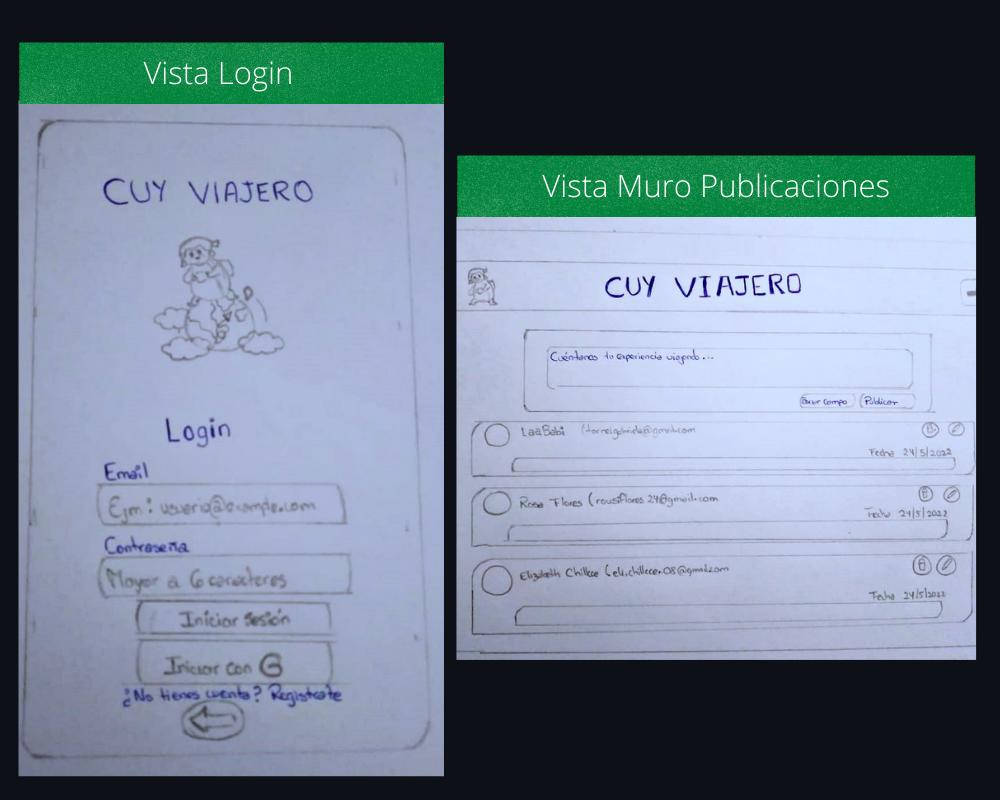 Vista Login
CUY VIAJERO
Login
Email
Ejm: usuario@example.com
Contraseña
Mayor a 6 caracteres
Iniciar Sesión
Iniciar con G
¿No tienes cuenta? Registrate
Vista Muro Publicaciones
CUY VIAJERO
Cuéntanos tu experiencia viajando...
Borrar Campo Publicar
LaaBabi
Fecha 24/5/2022
Rosa Flores (rousiflores24@gmail.com
Fecha 24/5/2022
Elizabeth Chillcce (eli.chillcce.08@gmail.com
Fecha 24/5/2022